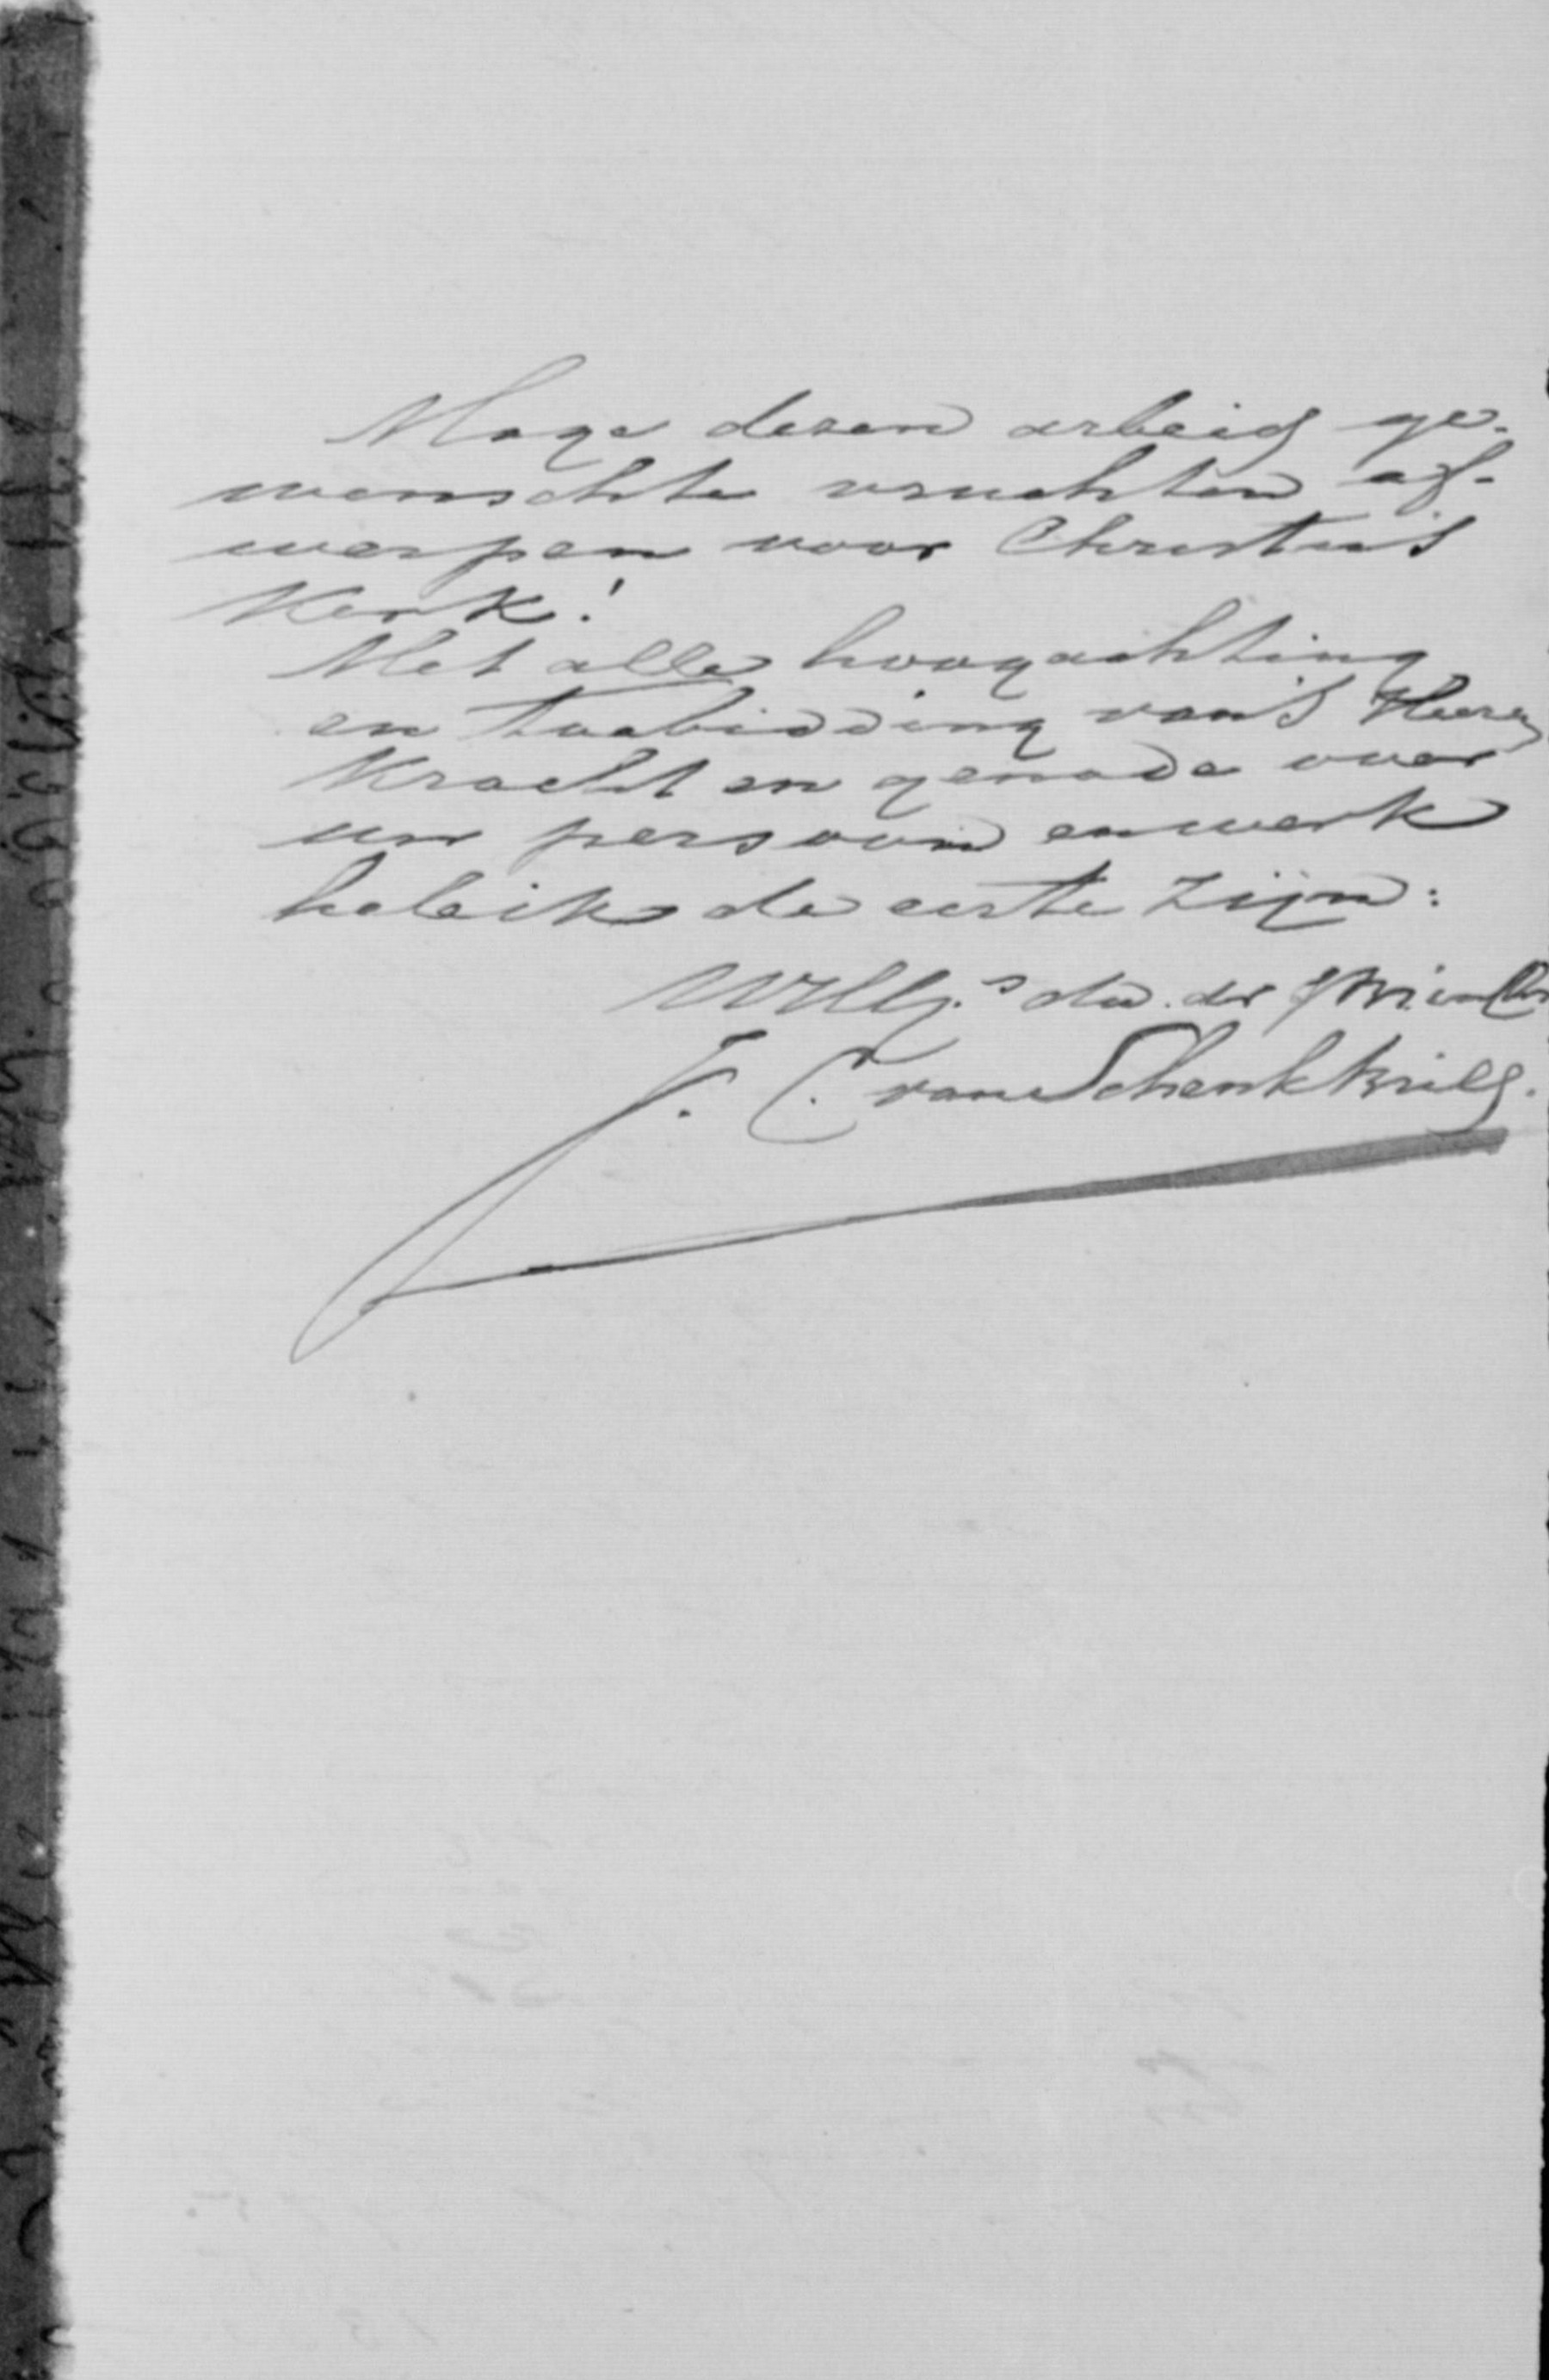 Moge dezen arbeid ge-
wenschte vruchten af-
werpen voor Christus
Kerk!
Met alle hoogachting
en toebidding van 's Heeren
Kracht en genade over
uw persoon en werk
heb ik de eer te zijn:
UWEgs dw. dr
J. C. van Schenk Brill.